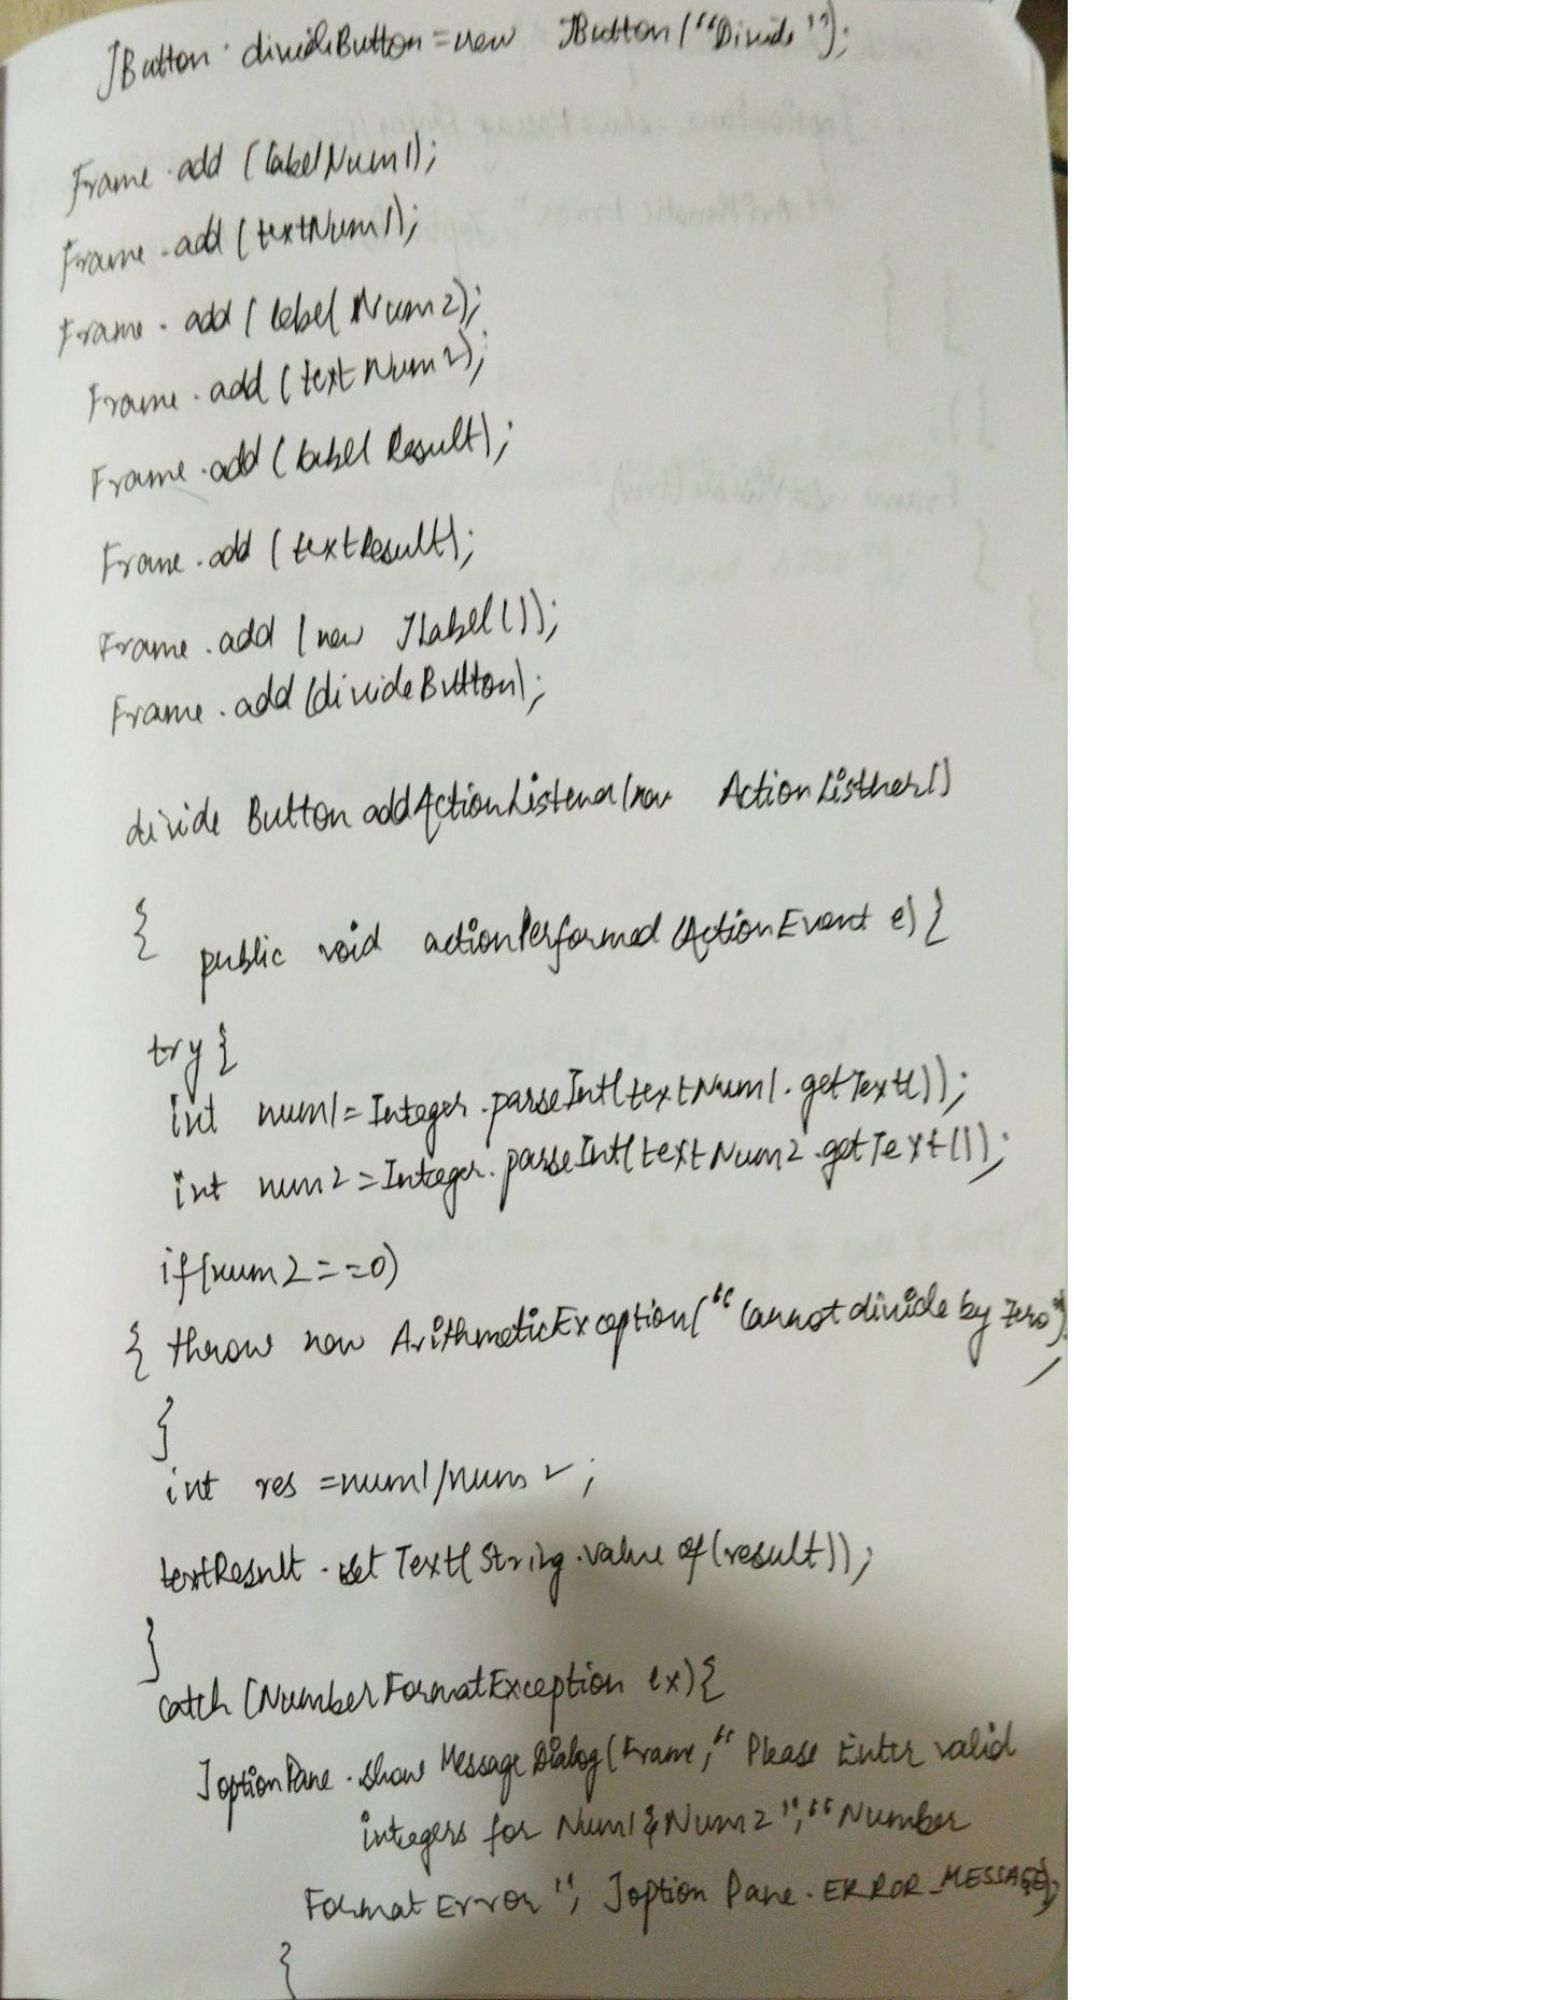 JButton divideButton = new JButton("Divide");
Frame.add (labelNum1);
Frame.add (textNum1);
Frame.add (label Num2);
Frame.add (text Num2);
Frame.add (label Result);
Frame.add (textResult);
Frame.add (new JLabel());
Frame.add (divideButton);
divide Button addActionListener(new ActionListner()
{ public void actionPerformed (ActionEvent e) {
try {
int num1 = Integer.parseInt(textNum1.getText());
int num2 = Integer.parseInt(textNum2.getText());
if(num2 = =0)
{ throw new ArithmeticException("Cannot divide by zero");
}
int res = num1/num2;
textResult.set Text(String.value of(result));
}
catch (NumberFormatException ex) {
JoptionPane.show Message Dialog(Frame," Please Enter valid
integers for Num1 & Num2", "Number
Format Error", Joption Pane.ERROR_MESSAGE);
}